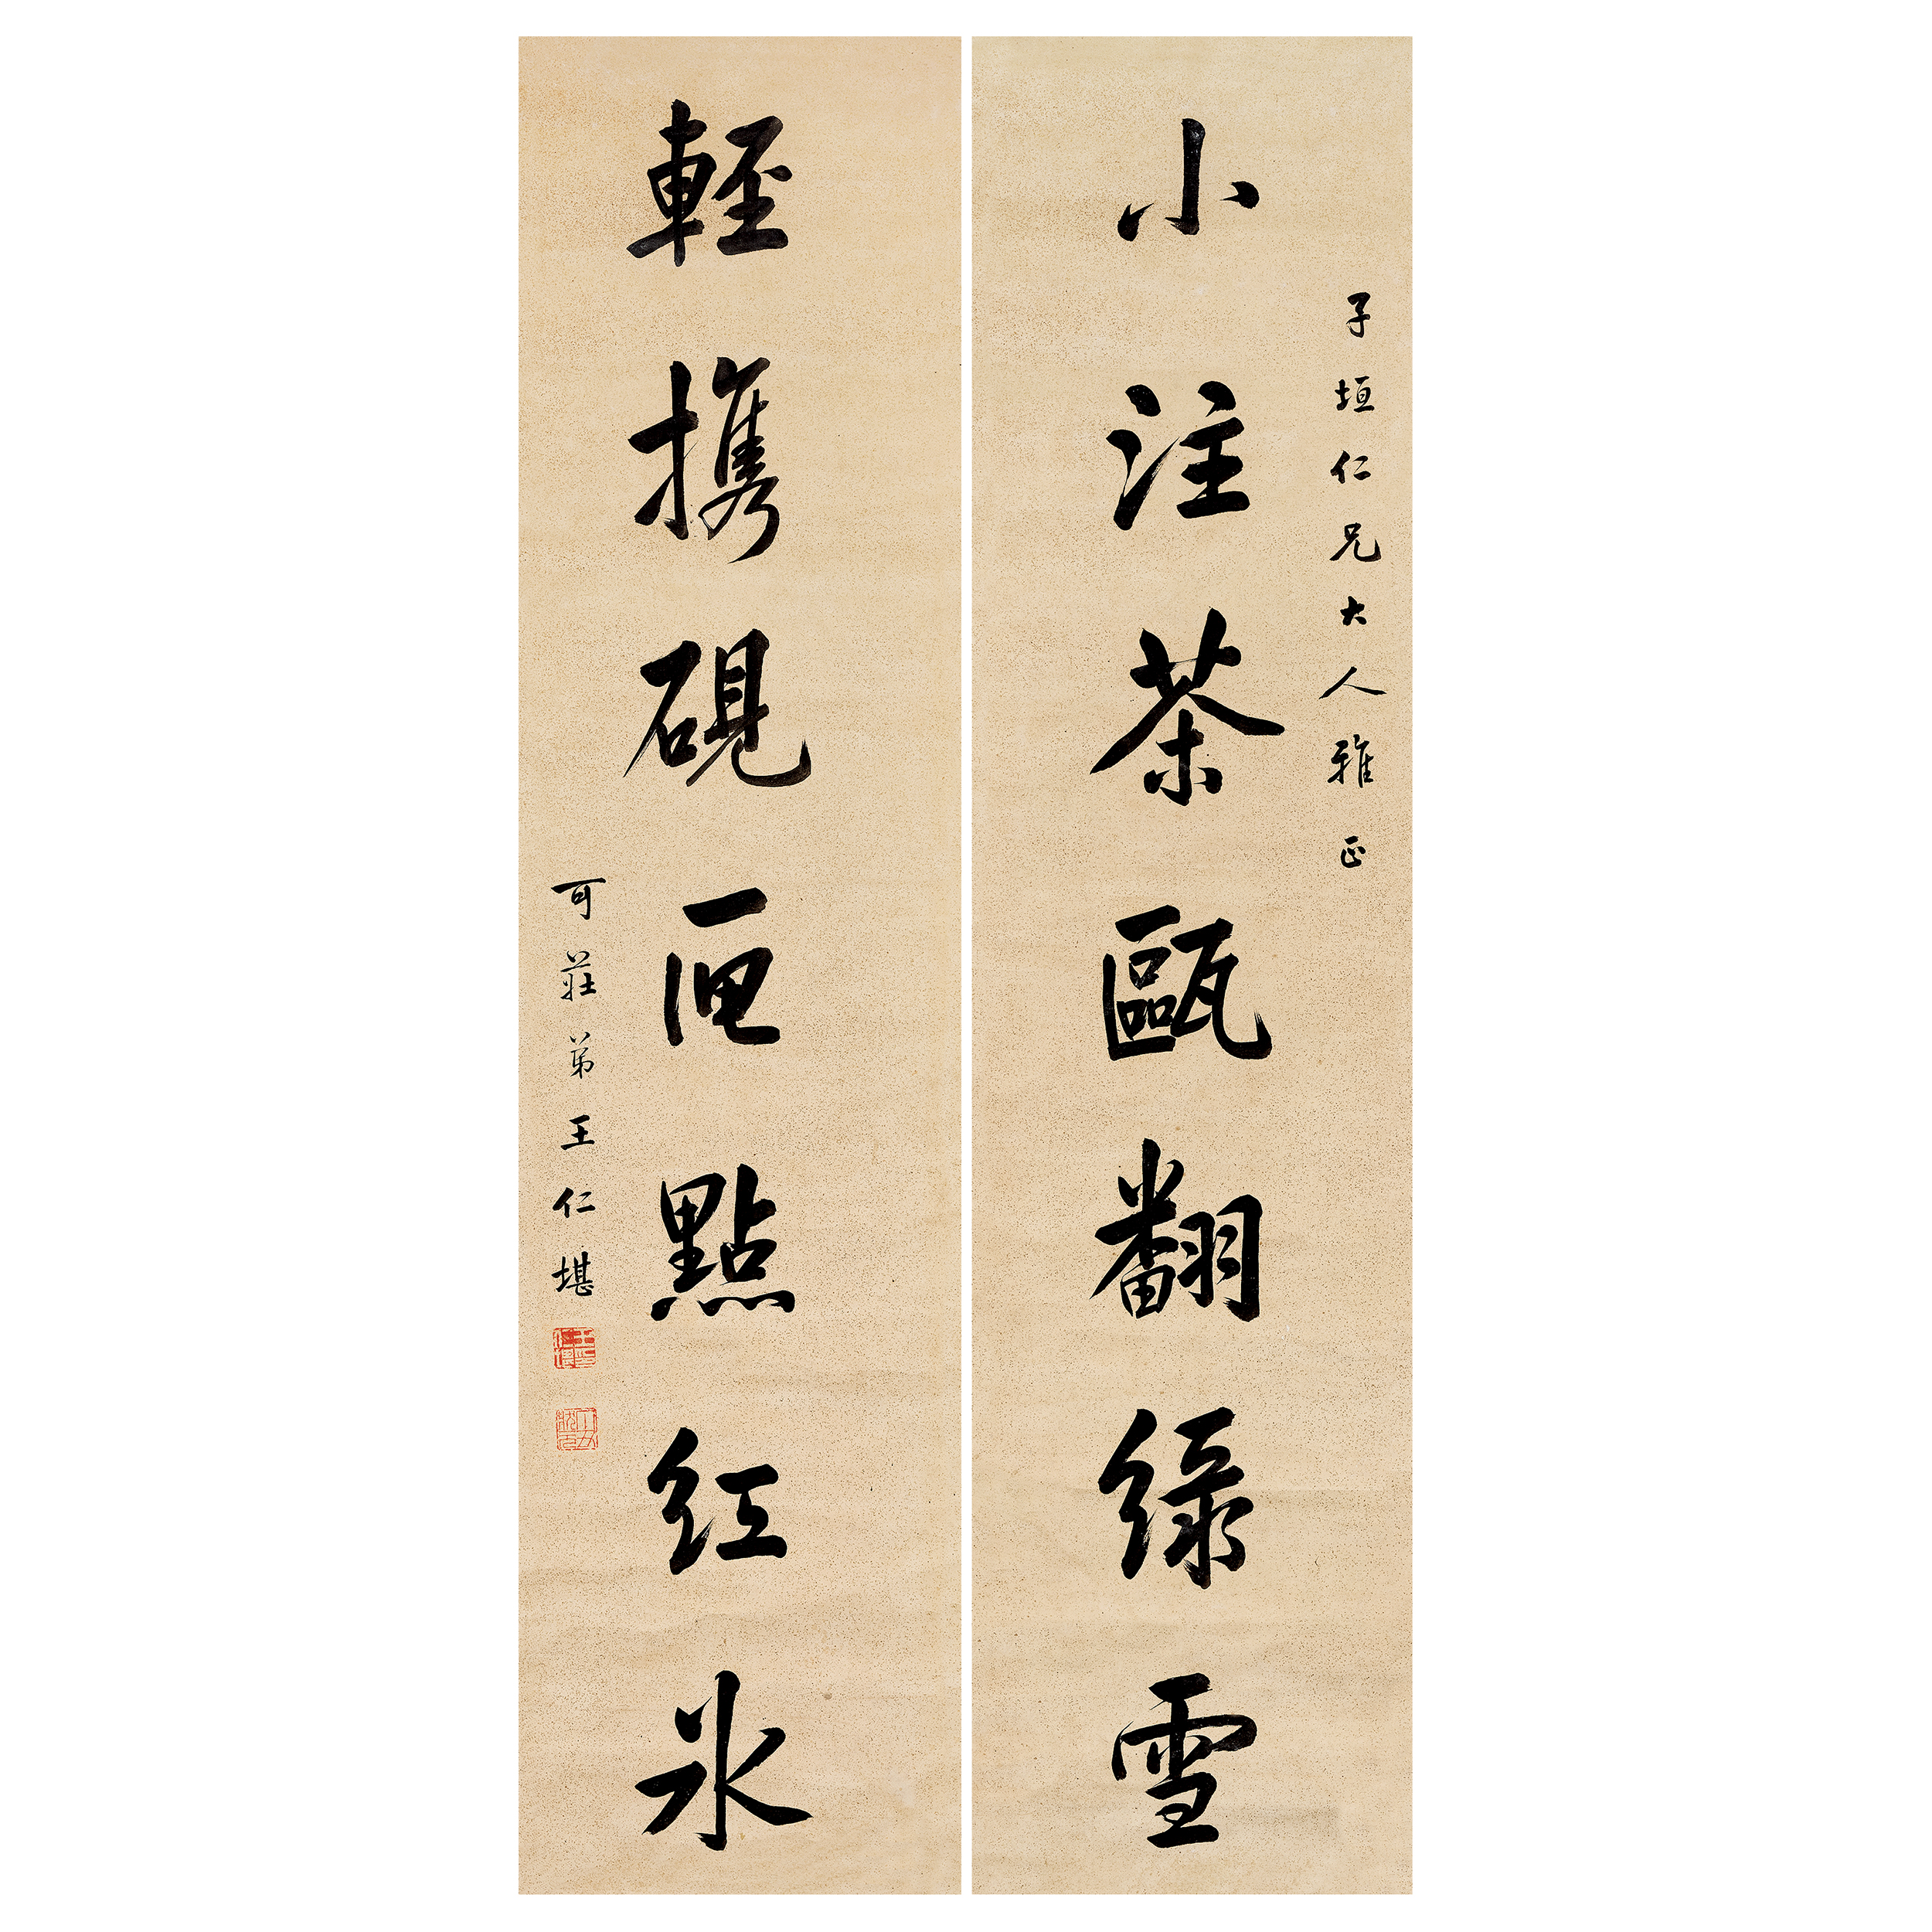 小注茶甌翻綠雪
子垣仁兄大人雅正
輕攜硯匣點紅冰
可莊弟王仁堪
丁丑狀元